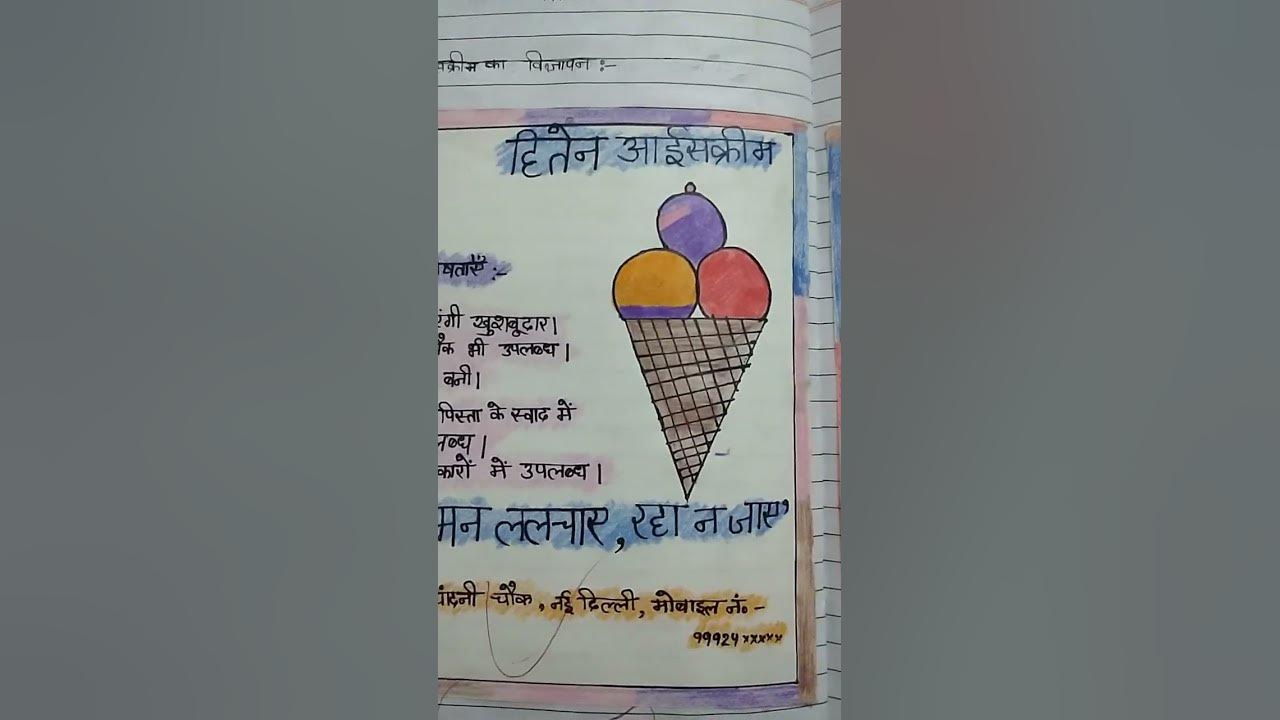 क्रीम का विज्ञापन :-
हितेन आईसक्रीम
षताएँ :-
रंगी खुशबूदार।
भी उपलब्ध।
बनी।
पिस्ता के स्वाद में
लब्ध।
कारों में उपलब्ध।
मन ललचाए, रहा न जाए’
चाँदनी चौक, नई दिल्ली, मोबाइल नं॰ -